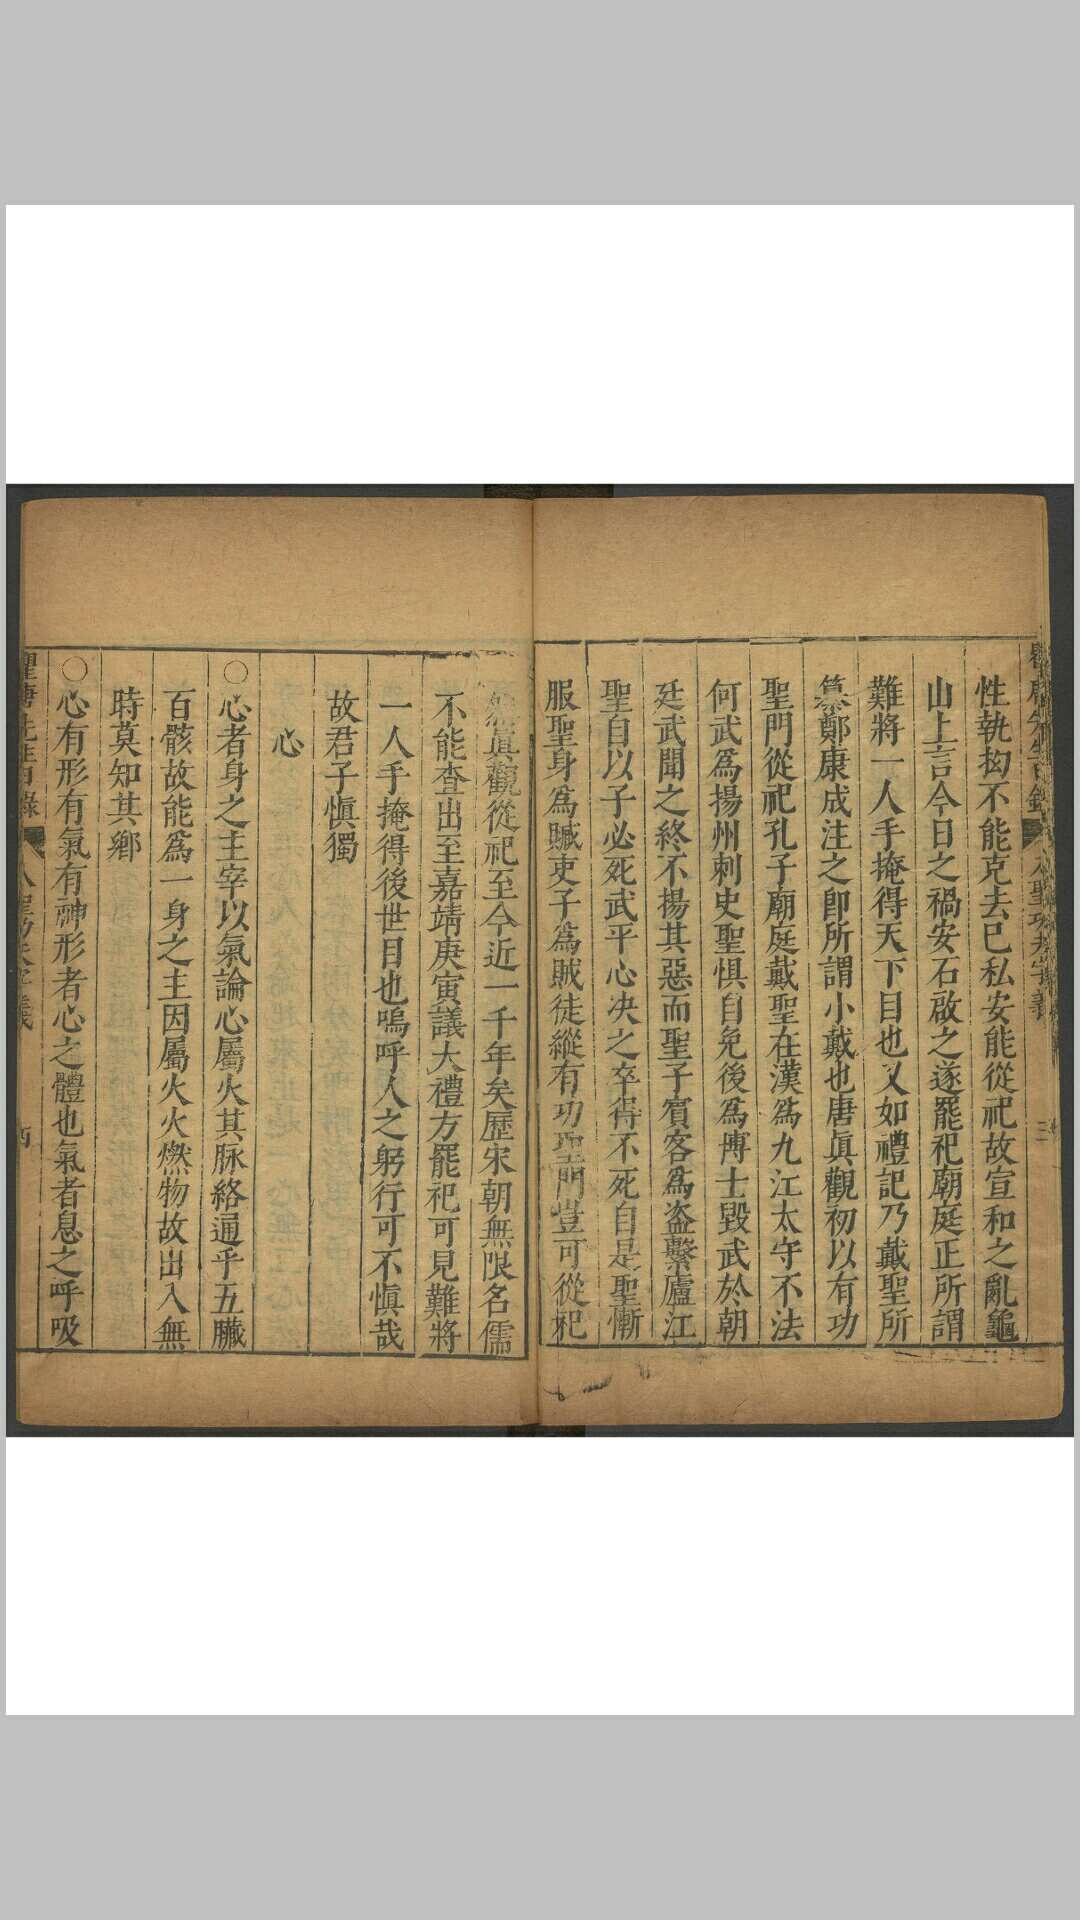 性執抝不能克去已私安能從祀故宣和之亂龜
山上言今日之禍安石啟之遂罷祀廟庭正所謂
難將一人手掩得天下目也又如禮記乃戴聖所
纂鄭康成注之卽所謂小戴也唐眞觀初以有功
聖門從祀孔子廟庭戴聖在漢爲九江太守不法
何武爲揚州刺史聖懼自免後爲博士毀武於朝
廷武聞之終不揚其惡而聖子賓客爲盗繫廬江
聖自以子必死武平心決之卒得不死自是聖慚
服聖身爲贓吏子爲賊徒縱有功聖門豈可從祀
眞觀從祀至今近一千年矣歷宋朝無限名儒
不能查出至嘉靖庚寅議大禮方罷祀可見難將
一人手掩得後世目也嗚呼人之躬行可不愼哉
故君子愼獨
心
○心者身之主宰以氣論心屬火其脉絡通乎五臟
百骸故能爲一身之主因屬火火燃物故出入無
時莫知其鄉
○心有形有氣有神形者心之體也氣者息之呼吸